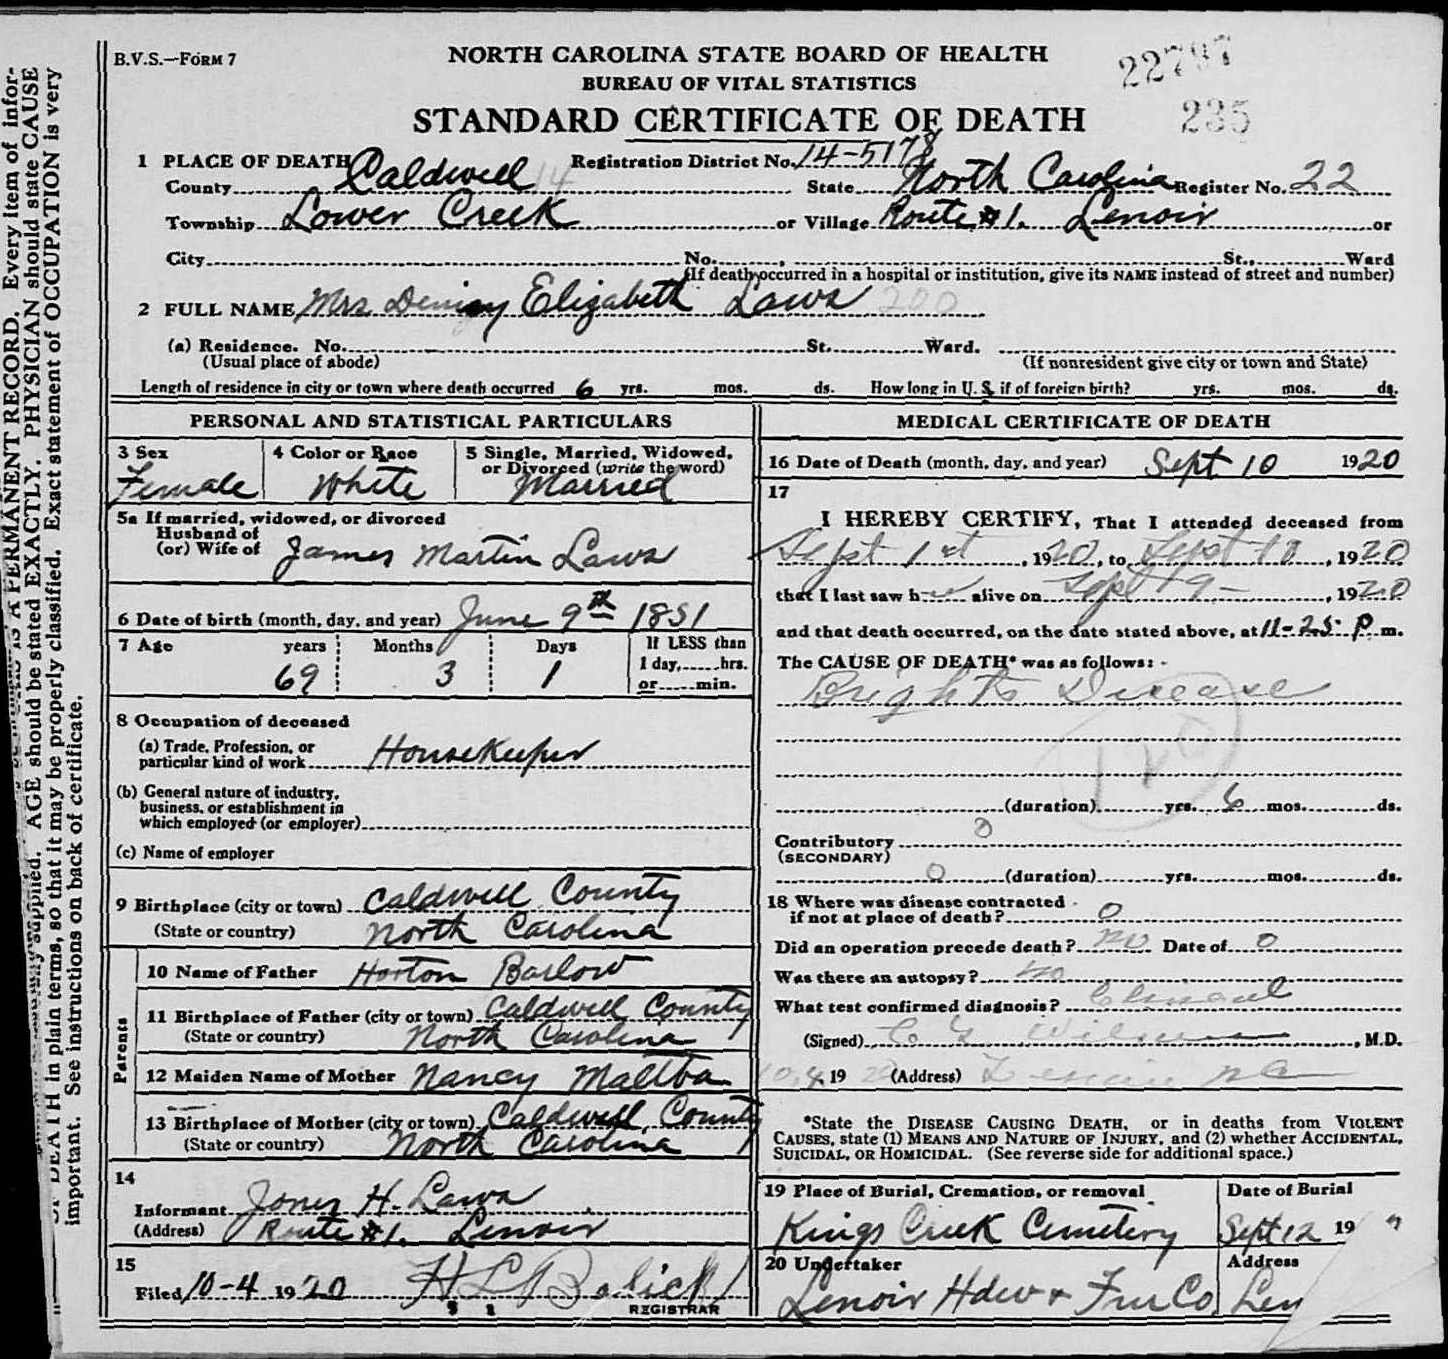 B.V.S.—FORM 7
NORTH CAROLINA STATE BOARD OF HEALTH
BUREAU OF VITAL STATISTICS
STANDARD CERTIFICATE OF DEATH
22797
235
1 PLACE OF DEATH Registration District No. 14-5178
County Caldwell 14 State North Carolina Register No. 22
Township Lower Creek or Village Route #1. Lenoir or
City No. , St., Ward
(If death occurred in a hospital or institution, give its NAME instead of street and number)
2 FULL NAME Mrs Elizabeth Laws 200
(a) Residence. No. St. Ward.
(Usual place of abode) (If nonresident give city or town and State)
Length of residence in city or town where death occurred 6 yrs. mos. ds. How long in U. S. if of foreign birth? yrs. mos. ds.
PERSONAL AND STATISTICAL PARTICULARS
3 Sex 4 Color or Race 5 Single, Married, Widowed, or Divorced (write the word)
Female White Married
5a If married, widowed, or divorced
Husband of
(or) Wife of James Martin Laws
6 Date of birth (month, day, and year) June 9th 1851
7 Age years Months Days If LESS than
69 3 1 1 day, hrs.
or min.
8 Occupation of deceased
(a) Trade, Profession, or
particular kind of work Housekeeper
(b) General nature of industry,
business, or establishment in
which employed (or employer)
(c) Name of employer
9 Birthplace (city or town) Caldwell County
(State or country) North Carolina
Parents
10 Name of Father Horton Barlow
11 Birthplace of Father (city or town) Caldwell County
(State or country) North Carolina
12 Maiden Name of Mother Nancy Maltba
13 Birthplace of Mother (city or town) Caldwell County
(State or country) North Carolina
14
Informant Jones H. Laws
(Address) Route #1. Lenoir
15
Filed 10-4 1920 H L Bolick
REGISTRAR
MEDICAL CERTIFICATE OF DEATH
16 Date of Death (month, day, and year) Sept 10 1920
17
I HEREBY CERTIFY, That I attended deceased from
Sept 1st, 1920, to Sept 10, 1920
that I last saw h alive on Sept 9 -, 1920
and that death occurred, on the date stated above, at 11-25 P m.
The CAUSE OF DEATH* was as follows:
Brights Disease
120
(duration) yrs. 6 mos. ds.
Contributory 0
(SECONDARY)
0 (duration) yrs. mos. ds.
18 Where was disease contracted
if not at place of death? 0
Did an operation precede death? no Date of 0
Was there an autopsy? no
What test confirmed diagnosis? Clinical
(Signed) Wilson, M.D.
10,4 1920 (Address) Lenoir NC
*State the DISEASE CAUSING DEATH, or in deaths from VIOLENT
CAUSES, state (1) MEANS AND NATURE OF INJURY, and (2) whether ACCIDENTAL,
SUICIDAL, OR HOMICIDAL. (See reverse side for additional space.)
19 Place of Burial, Cremation, or removal Date of Burial
Kings Creek Cemetery Sept 12 19 "
20 Undertaker Address
Lenoir Hdw & Fur Co. Len
A PERMANENT RECORD. Every item of infor-
supplied. AGE should be stated EXACTLY. PHYSICIAN should state CAUSE
OF DEATH in plain terms, so that it may be properly classified. Exact statement of OCCUPATION is very
important. See instructions on back of certificate.